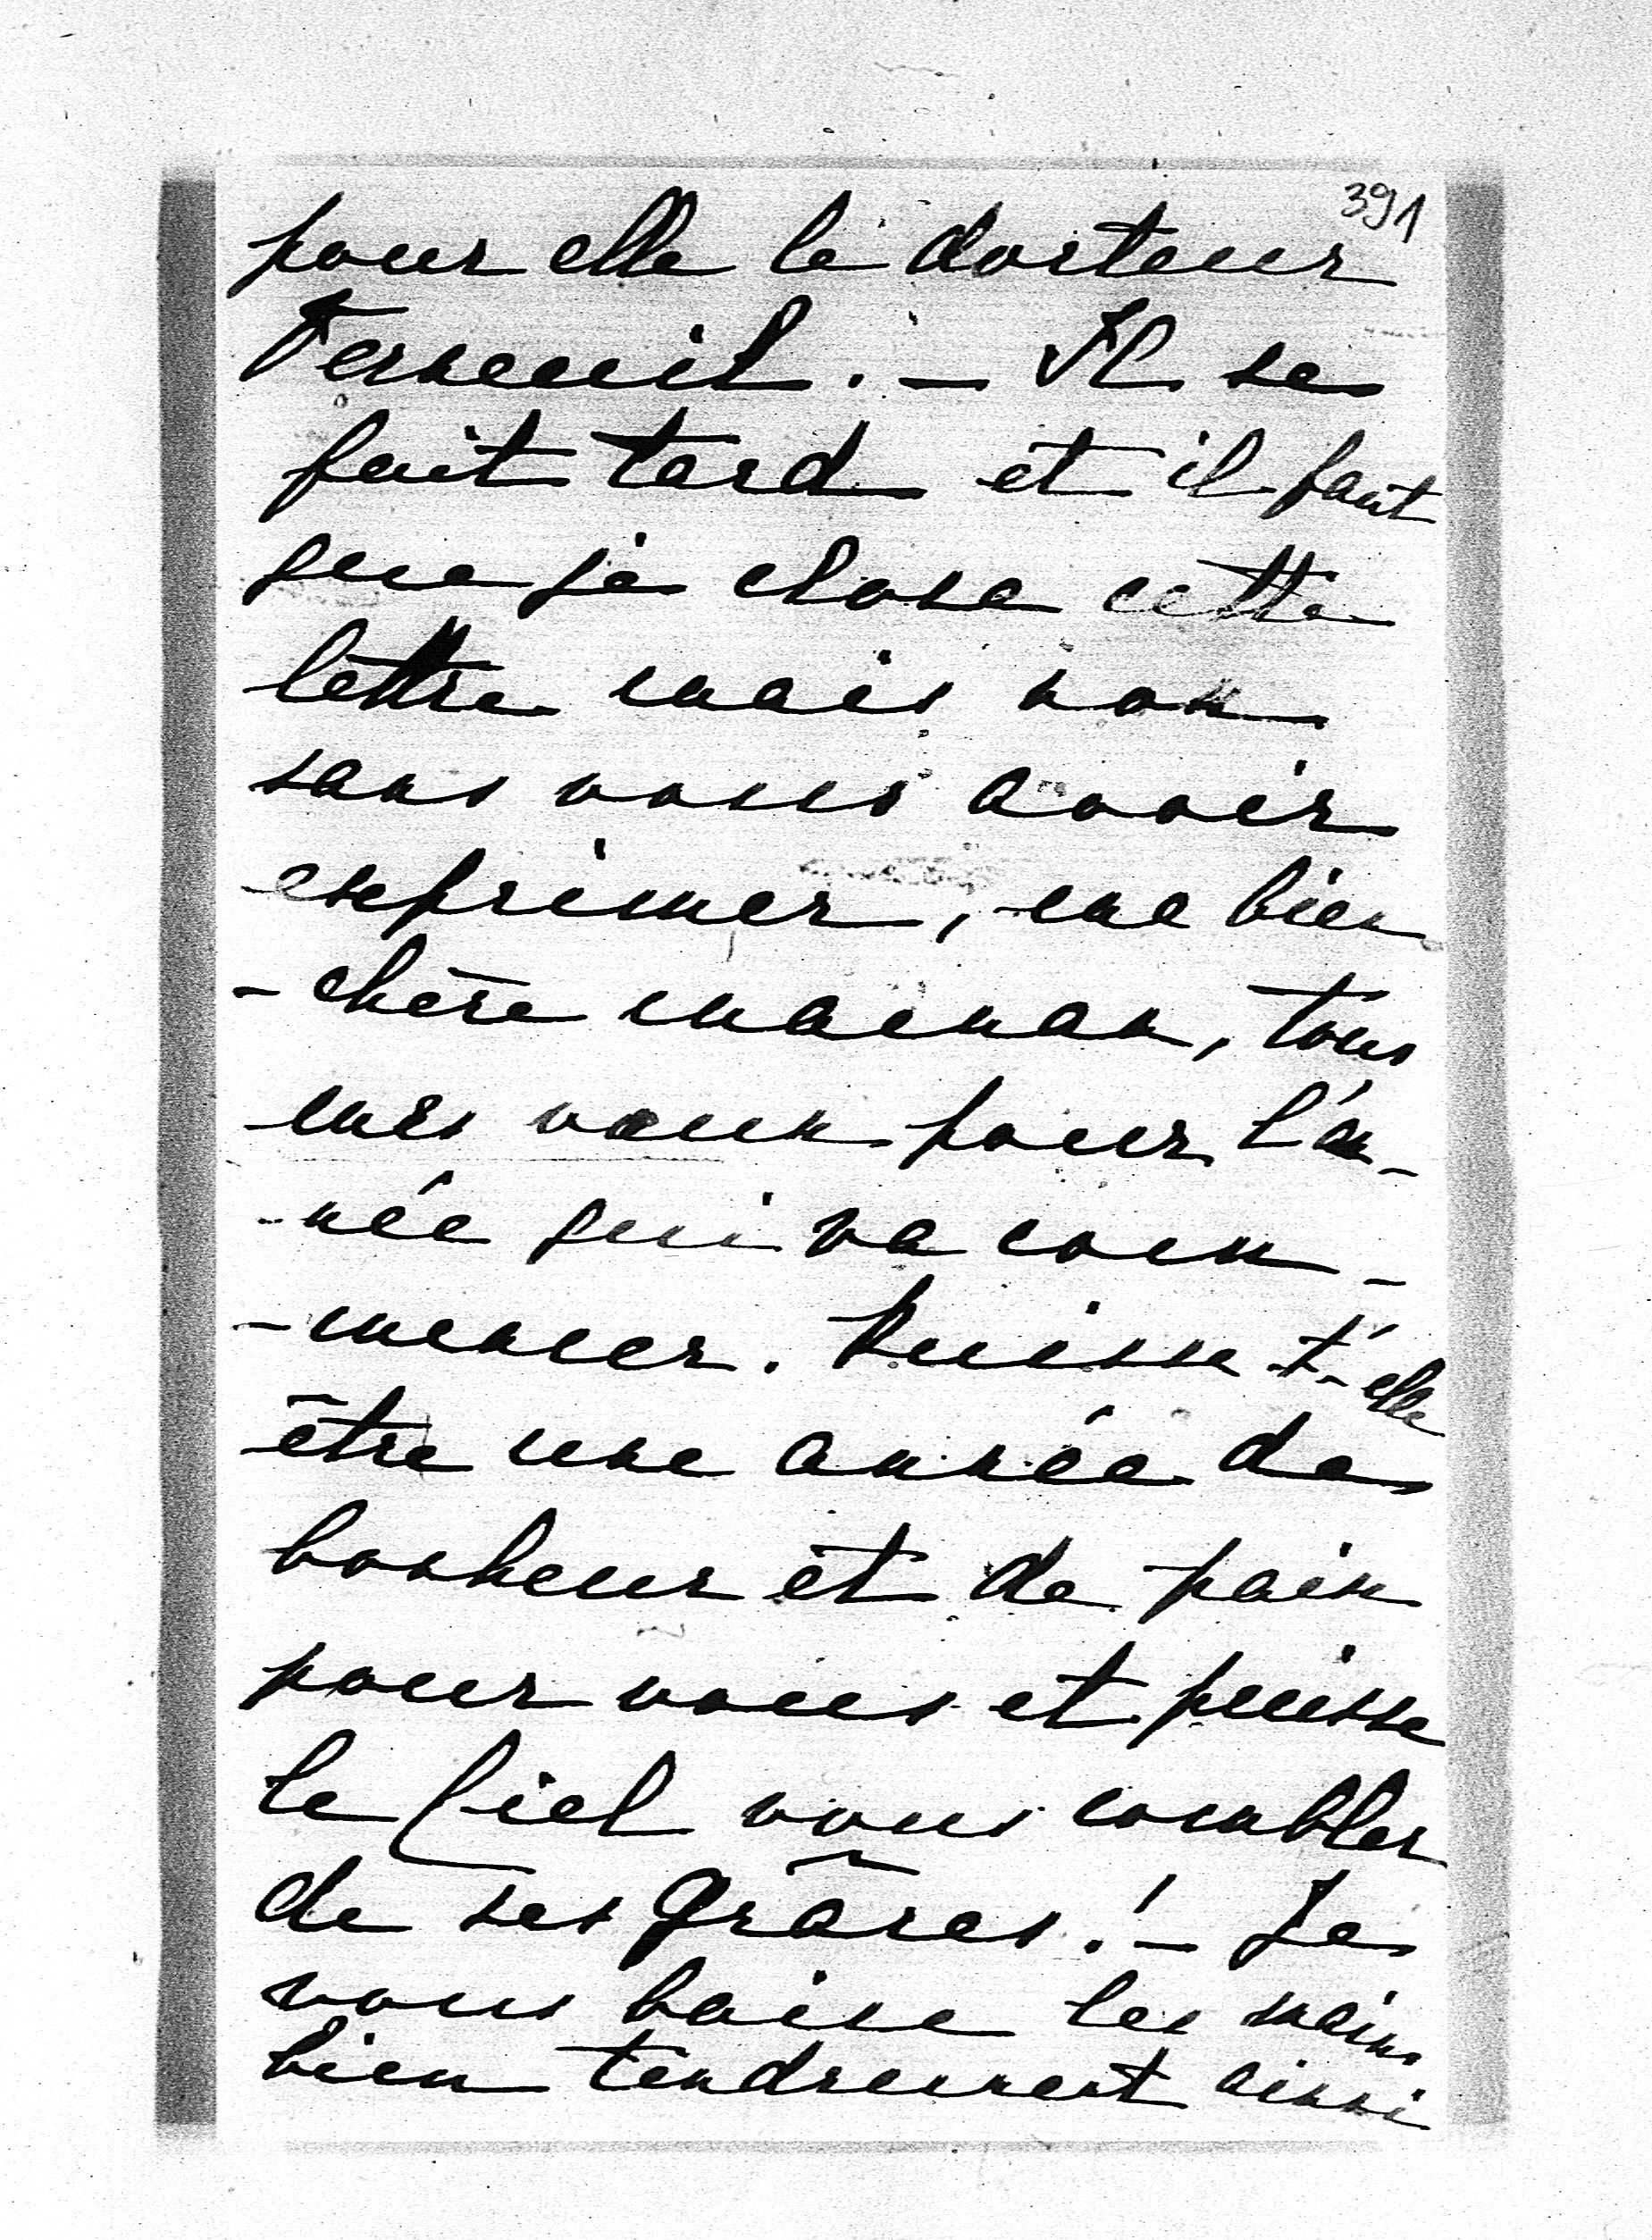 391
pour elle le docteur
Verneuil. — Il se
fait tard et il faut
que je close cette
lettre mais non
sans vous avoir
exprimer, ma bien
- chère maman, tous
mes vœux pour l'an-
- née qui va com-
- mencer. Puisse t'-elle
être une année de
bonheur et de paix
pour vous et puisse
le Ciel vous combler
de ses grâces! — Je
vous baise les mains
bien tendrement ainsi